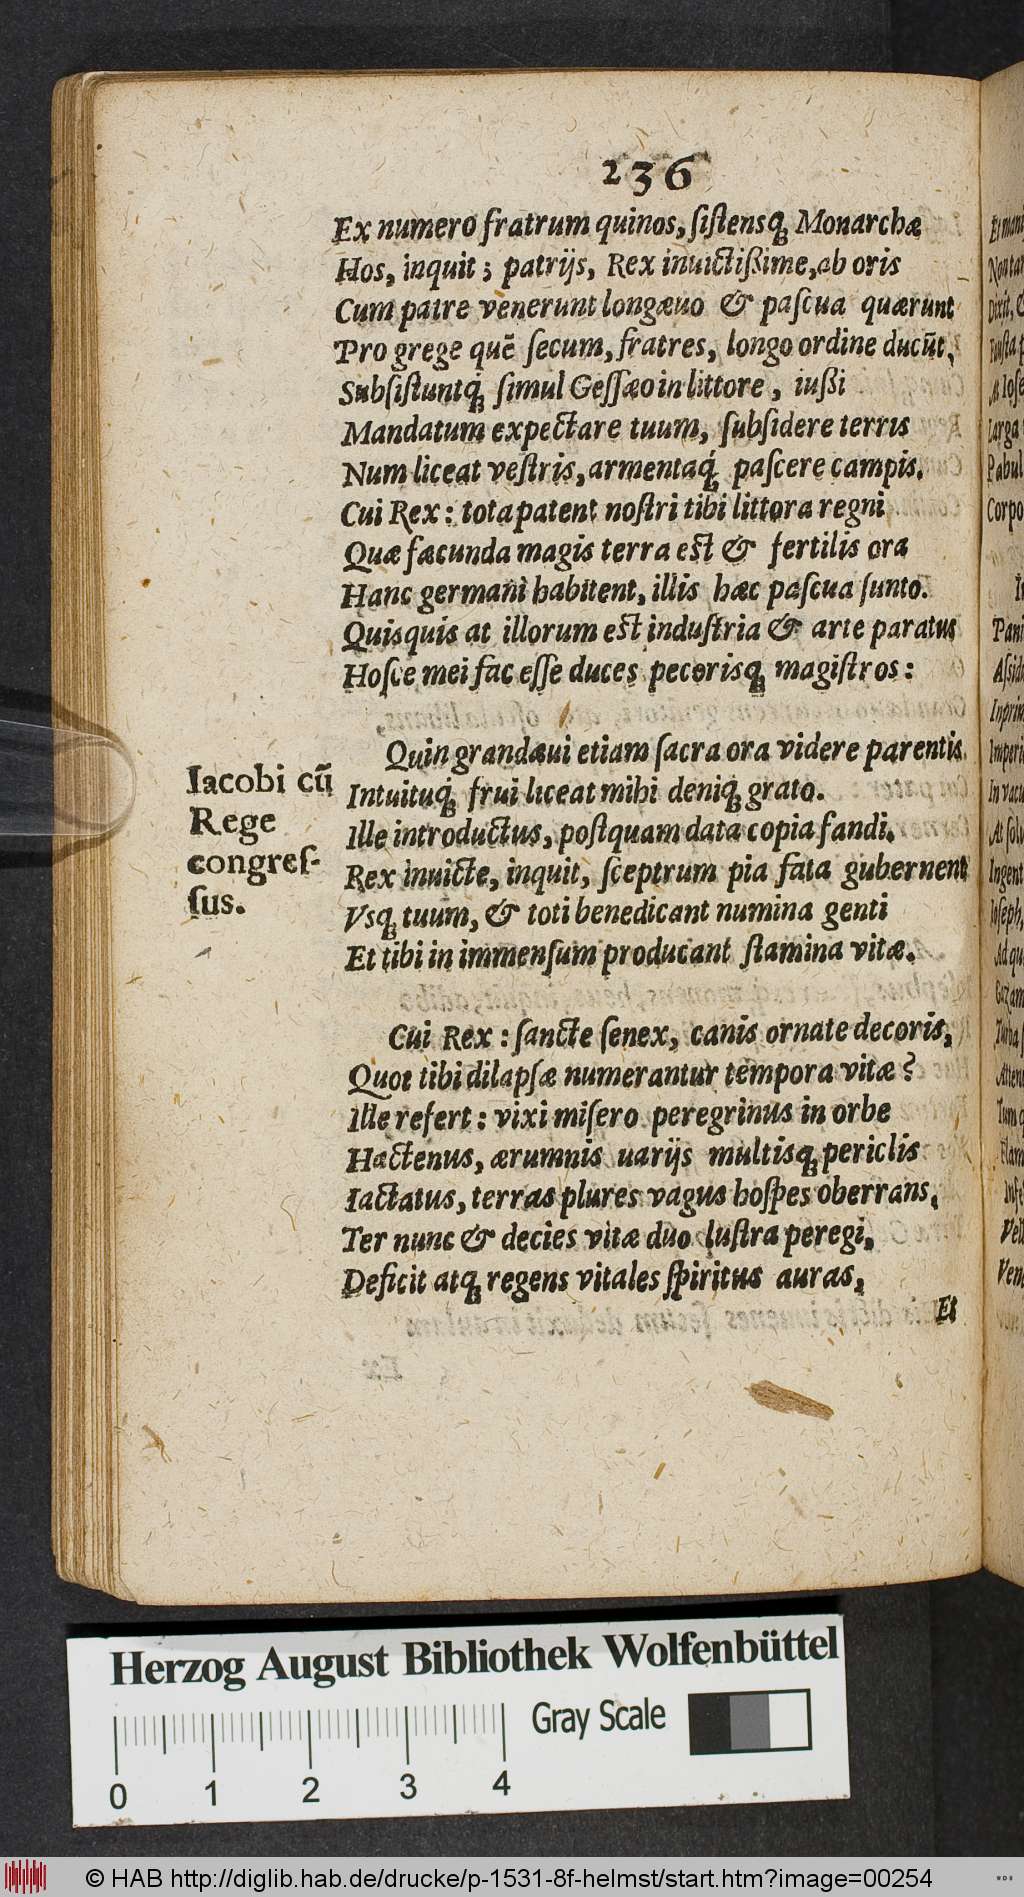 236
Ex numero fratrum quinos, ſiſtensq́ꝫ Monarchæ
Hos, inquit; patrijs, Rex inuictißime, ab oris
Cum patre venerunt longæuo & paſcua quærunt
Pro grege quē ſecum, fratres, longo ordine ducūt,
Subſiſtuntq́ꝫ ſimul Geſſæo in littore, iußi
Mandatum expectare tuum, ſubſidere terris
Num liceat veſtris, armentaq́ꝫ paſcere campis.
Cui Rex: tota patent noſtri tibi littora regni
Quæ fæcunda magis terra eſt & fertilis ora
Hanc germani habitent, illis hæc paſcua ſunto.
Quisquis at illorum eſt induſtria & arte paratus
Hoſce mei fac eſſe duces pecorisqꝫ magiſtros:
Quin grandæui etiam ſacra ora videre parentis
Intuituqꝫ frui liceat mihi deniqꝫ grato.
Ille introductus, poſtquam data copia fandi.
Rex inuicte, inquit, ſceptrum pia fata gubernent
Vsqꝫ tuum, & toti benedicant numina genti
Et tibi in immenſum producant ſtamina vitæ.
Iacobi cū
Rege
congreſ-
ſus.
Cui Rex: ſancte ſenex, canis ornate decoris,
Quot tibi dilapſæ numerantur tempora vitæ?
Ille refert: vixi miſero peregrinus in orbe
Hactenus, ærumnis uarijs multisqꝫ periclis
Iactatus, terras plures vagus hoſpes oberrans,
Ter nunc & decies vitæ duo luſtra peregi,
Deficit atqꝫ regens vitales ſpiritus auras,
Et
Herzog August Bibliothek Wolfenbüttel
Gray Scale
0 1 2 3 4
© HAB http://diglib.hab.de/drucke/p-1531-8f-helmst/start.htm?image=00254